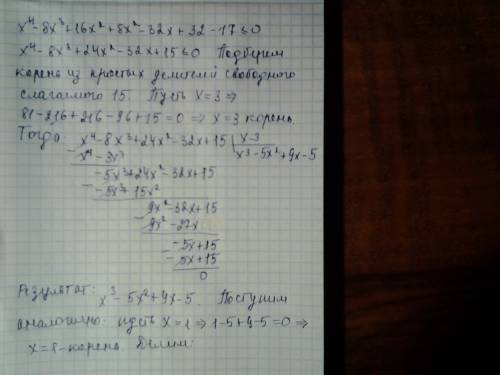 x⁴ - 8x³ + 16x² + 8x² - 32x + 32 - 17 = 0
x⁴ - 8x³ + 24x² - 32x + 15 = 0 Подберем
корень из простых делителей свободного
слагаемого 15. Пусть x = 3 ⇒
81 - 216 + 216 - 96 + 15 = 0 ⇒ x = 3 корень.
Тогда: x⁴ - 8x³ + 24x² - 32x + 15 | x - 3
- x⁴ - 3x³ x³ - 5x² + 9x - 5
- 5x³ + 24x² - 32x + 15
- 5x³ + 15x²
9x² - 32x + 15
- 9x² - 27x
- 5x + 15
- 5x + 15
0
Результат: x³ - 5x² + 9x - 5. Поступим
аналогично: пусть x = 1 ⇒ 1 - 5 + 9 - 5 = 0 ⇒
x = 1 - корень. Делим: